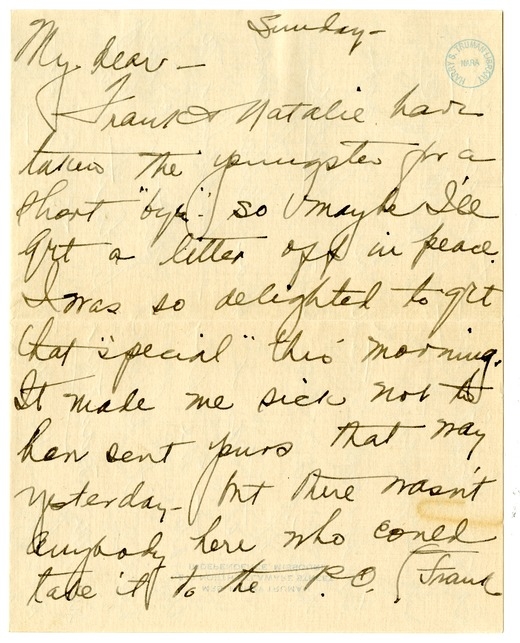 Sunday-
My dear-
HARRY S. TRUMAN LIBRARY
NARA
Frank & Natalie have
taken the youngster for a
short "bye" so maybe I'll
get a letter off in peace.
I was so delighted to get
that "special" this morning.
It made me sick not to
have sent yours that way
yesterday- but there wasn't
anybody here who could
take it to the P.O. (Frank